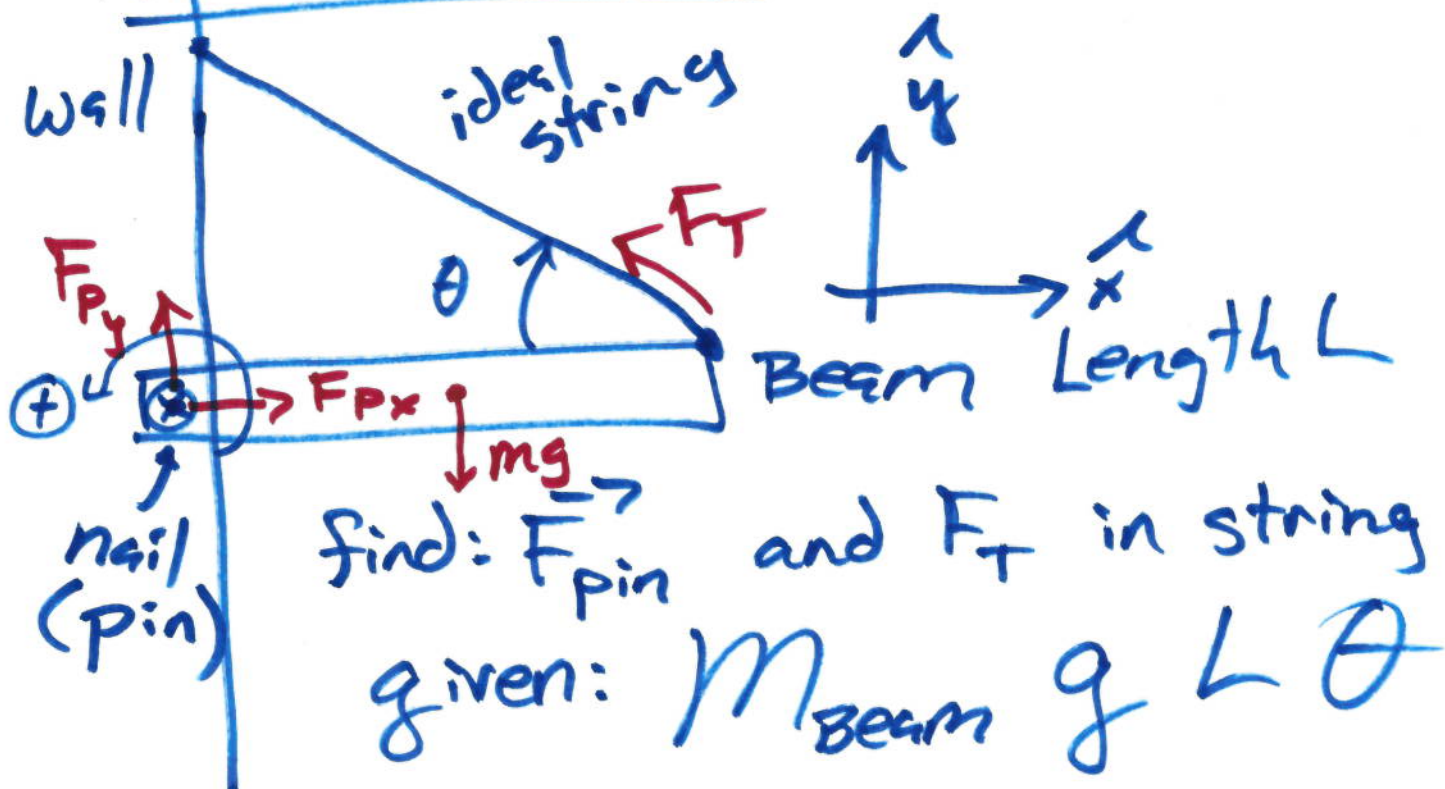 wall
ideal
string
ŷ
F_T
θ
F_Py
x̂
Length L
Beam
+
F_Px
mg
nail
(pin)
find: F⃗_pin and F_T in string
given: m_Beam g L θ